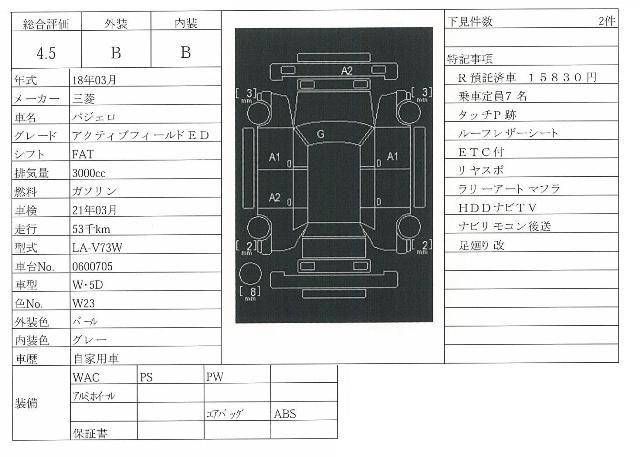 総合評価 外装 内装
4.5 B B
年式 18年03月
メーカー 三菱
車名 パジェロ
グレード アクティブフィールドED
シフト FAT
排気量 3000cc
燃料 ガソリン
車検 21年03月
走行 53千km
型式 LA-V73W
車台No. 0600705
車型 W・5D
色No. W23
外装色 パール
内装色 グレー
車歴 自家用車
装備
WAC PS PW
アルミホイール
エアバッグ ABS
保証書
A2
[3] mm [3] mm
G
A1 A1
A2
[2] mm [2] mm
[8] mm
下見件数 2件
特記事項
R預託済車 15830円
乗車定員7名
タッチP跡
ルーフレザーシート
ETC付
リヤスポ
ラリーアートマフラ
HDDナビTV
ナビリモコン後送
足廻り改